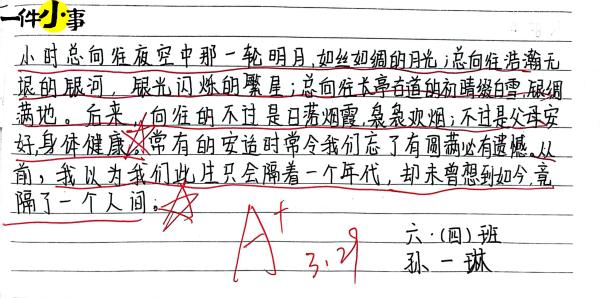 一件小事
小时总向往夜空中那一轮明月,如丝如绸的月光;总向往浩瀚无
垠的银河,银光闪烁的繁星;总向往长亭古道的初晴缀白雪,银绸
满地。后来,向往的不过是日落烟霞,袅袅炊烟;不过是父母安
好,身体健康。常有的安适时常令我们忘了有圆满必有遗憾。从
前,我以为我们此生只会隔着一个年代,却未曾想到如今,竟
隔了一个人间。
A+
3.29
六·(四)班
孙一琳